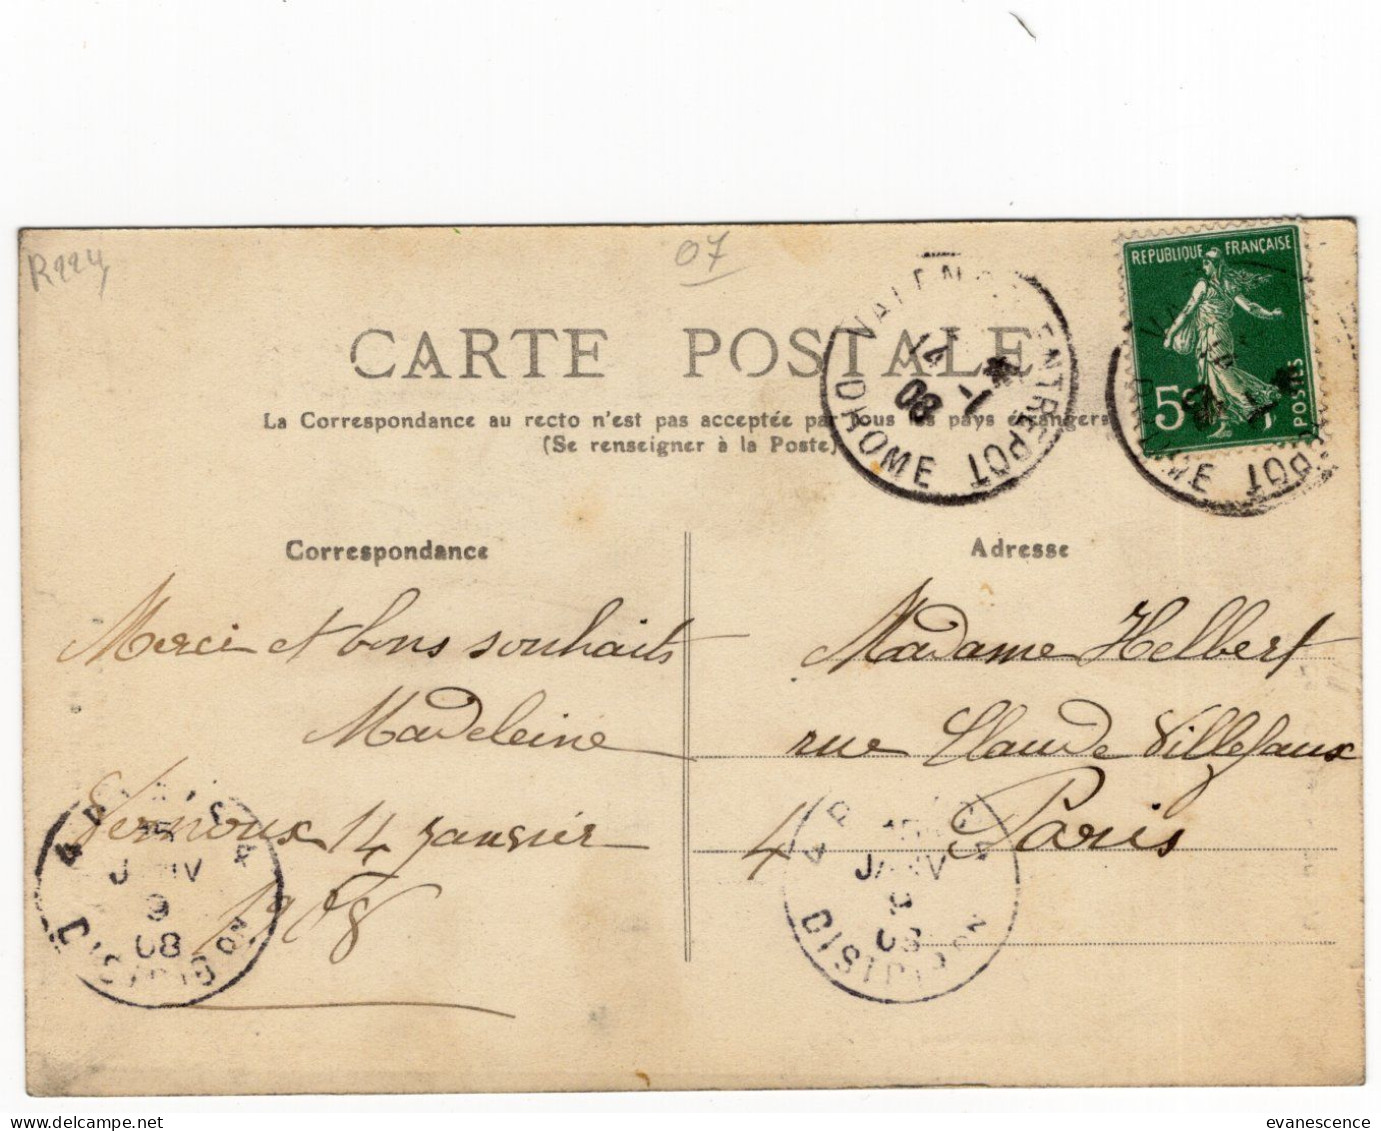 R224
07
REPUBLIQUE FRANÇAISE
5c
POSTES
VALENCE ENTREPOT
14 -1
08
DROME
CARTE POSTALE
La Correspondance au recto n'est pas acceptée par tous les pays étrangers
(Se renseigner à la Poste)
Correspondance
Merci et bons souhaits
Madeleine
Vernoux 14 janvier
1908
JANV
08
DISTRIBUTION
Adresse
Madame Helbert
rue Claude Villefaux
4 Paris
JANV
08
DISTRIBUTION
evanescence